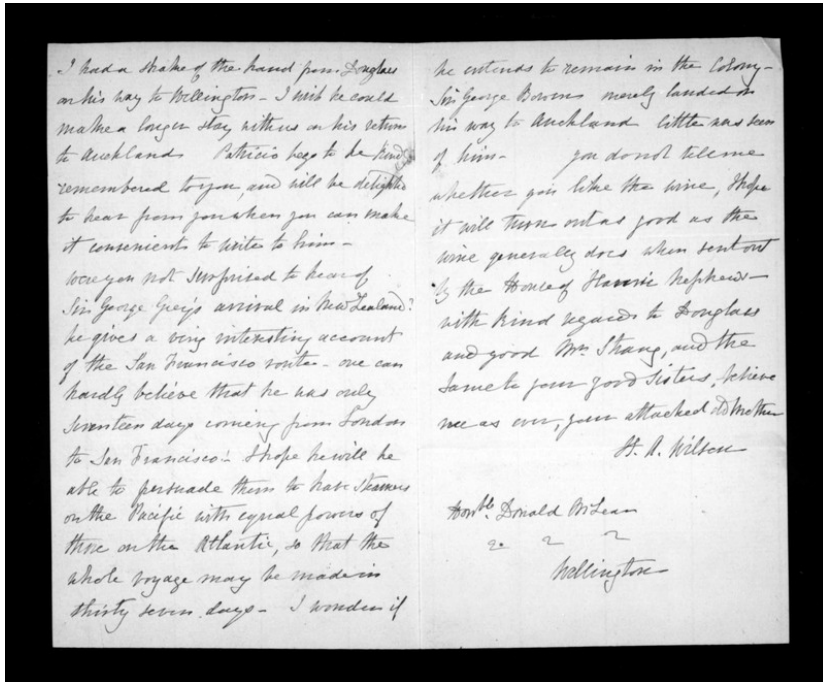 I had a shake of the hand from Douglas
on his way to Wellington - I wish he could
make a longer stay with us on his return
to Auckland Patricio begs to be kindly
remembered to you, and will be delighted
to hear from you when you can make
it convenient to write to him -
were you not surprised to hear of
Sir George Grey's arrival in New Zealand?
he gives a very interesting account
of the San Francisco route - one can
hardly believe that he was only
seventeen days coming from London
to San Francisco! I hope he will be
able to persuade them to have steamers
on the Pacific with equal powers of
those on the Atlantic, so that the
whole voyage may be made in
thirty seven days - I wonder if
he intends to remain in the Colony -
Sir George Bowen merely landed on
his way to Auckland little was seen
of him - you do not tell me
whether you like the wine, I hope
it will turn out as good as the
wine generally does when sent out
by the House of Nephews -
with kind regards to Douglas
and good Mrs Strang, and the
same to your good Sisters, believe
me as ever, your attached old Mother
H. A. Wilson
Honble. Donald McLean
Wellington